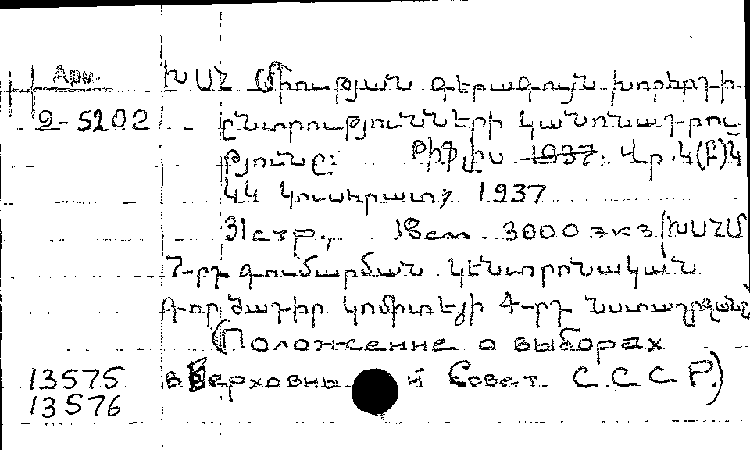 Арм.
ԽՍՀ Միության գերագույն խորհրդի
2-5202 ընտրությունների կանոնադրու
թյունը: Թիֆլիս 1937. Վր. Կ(բ)Կ
ԿԿ կուսհրատ, 1937
31 стр., 18см 3000 экз (ԽՍՀՄ
7-րդ գումարման կենտրոնական
գործադիր կոմիտեյի 4-րդ նստաշրջան
(Положение о выборах
13575 в Верховный Совет С.С.С.Р.)
13576